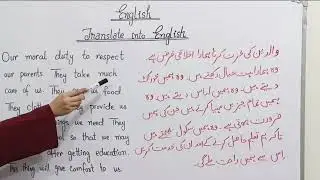 English
Translate into English
Our moral duty to respect
our parents They take much
care of us. They food.
They provide us
ings we need They
ol so that we may
after getting education.
they will give comfort to us.
والدین کی عزت کرنا ہمارا اخلاقی فرض ہے
وہ ہمارا بہت خیال رکھتے ہیں۔ وہ ہمیں خوراک
دیتے ہیں۔ وہ ہمیں لباس دیتے ہیں۔ وہ
ہمیں تمام چیزیں مہیا کرتے ہیں جن کی ہمیں
ضرورت ہوتی ہے۔ وہ ہمیں سکول بھیجتے ہیں
تاکہ ہم تعلیم حاصل کر کے ان کی خدمت کریں
اس سے ہمیں راحت ملے گی۔